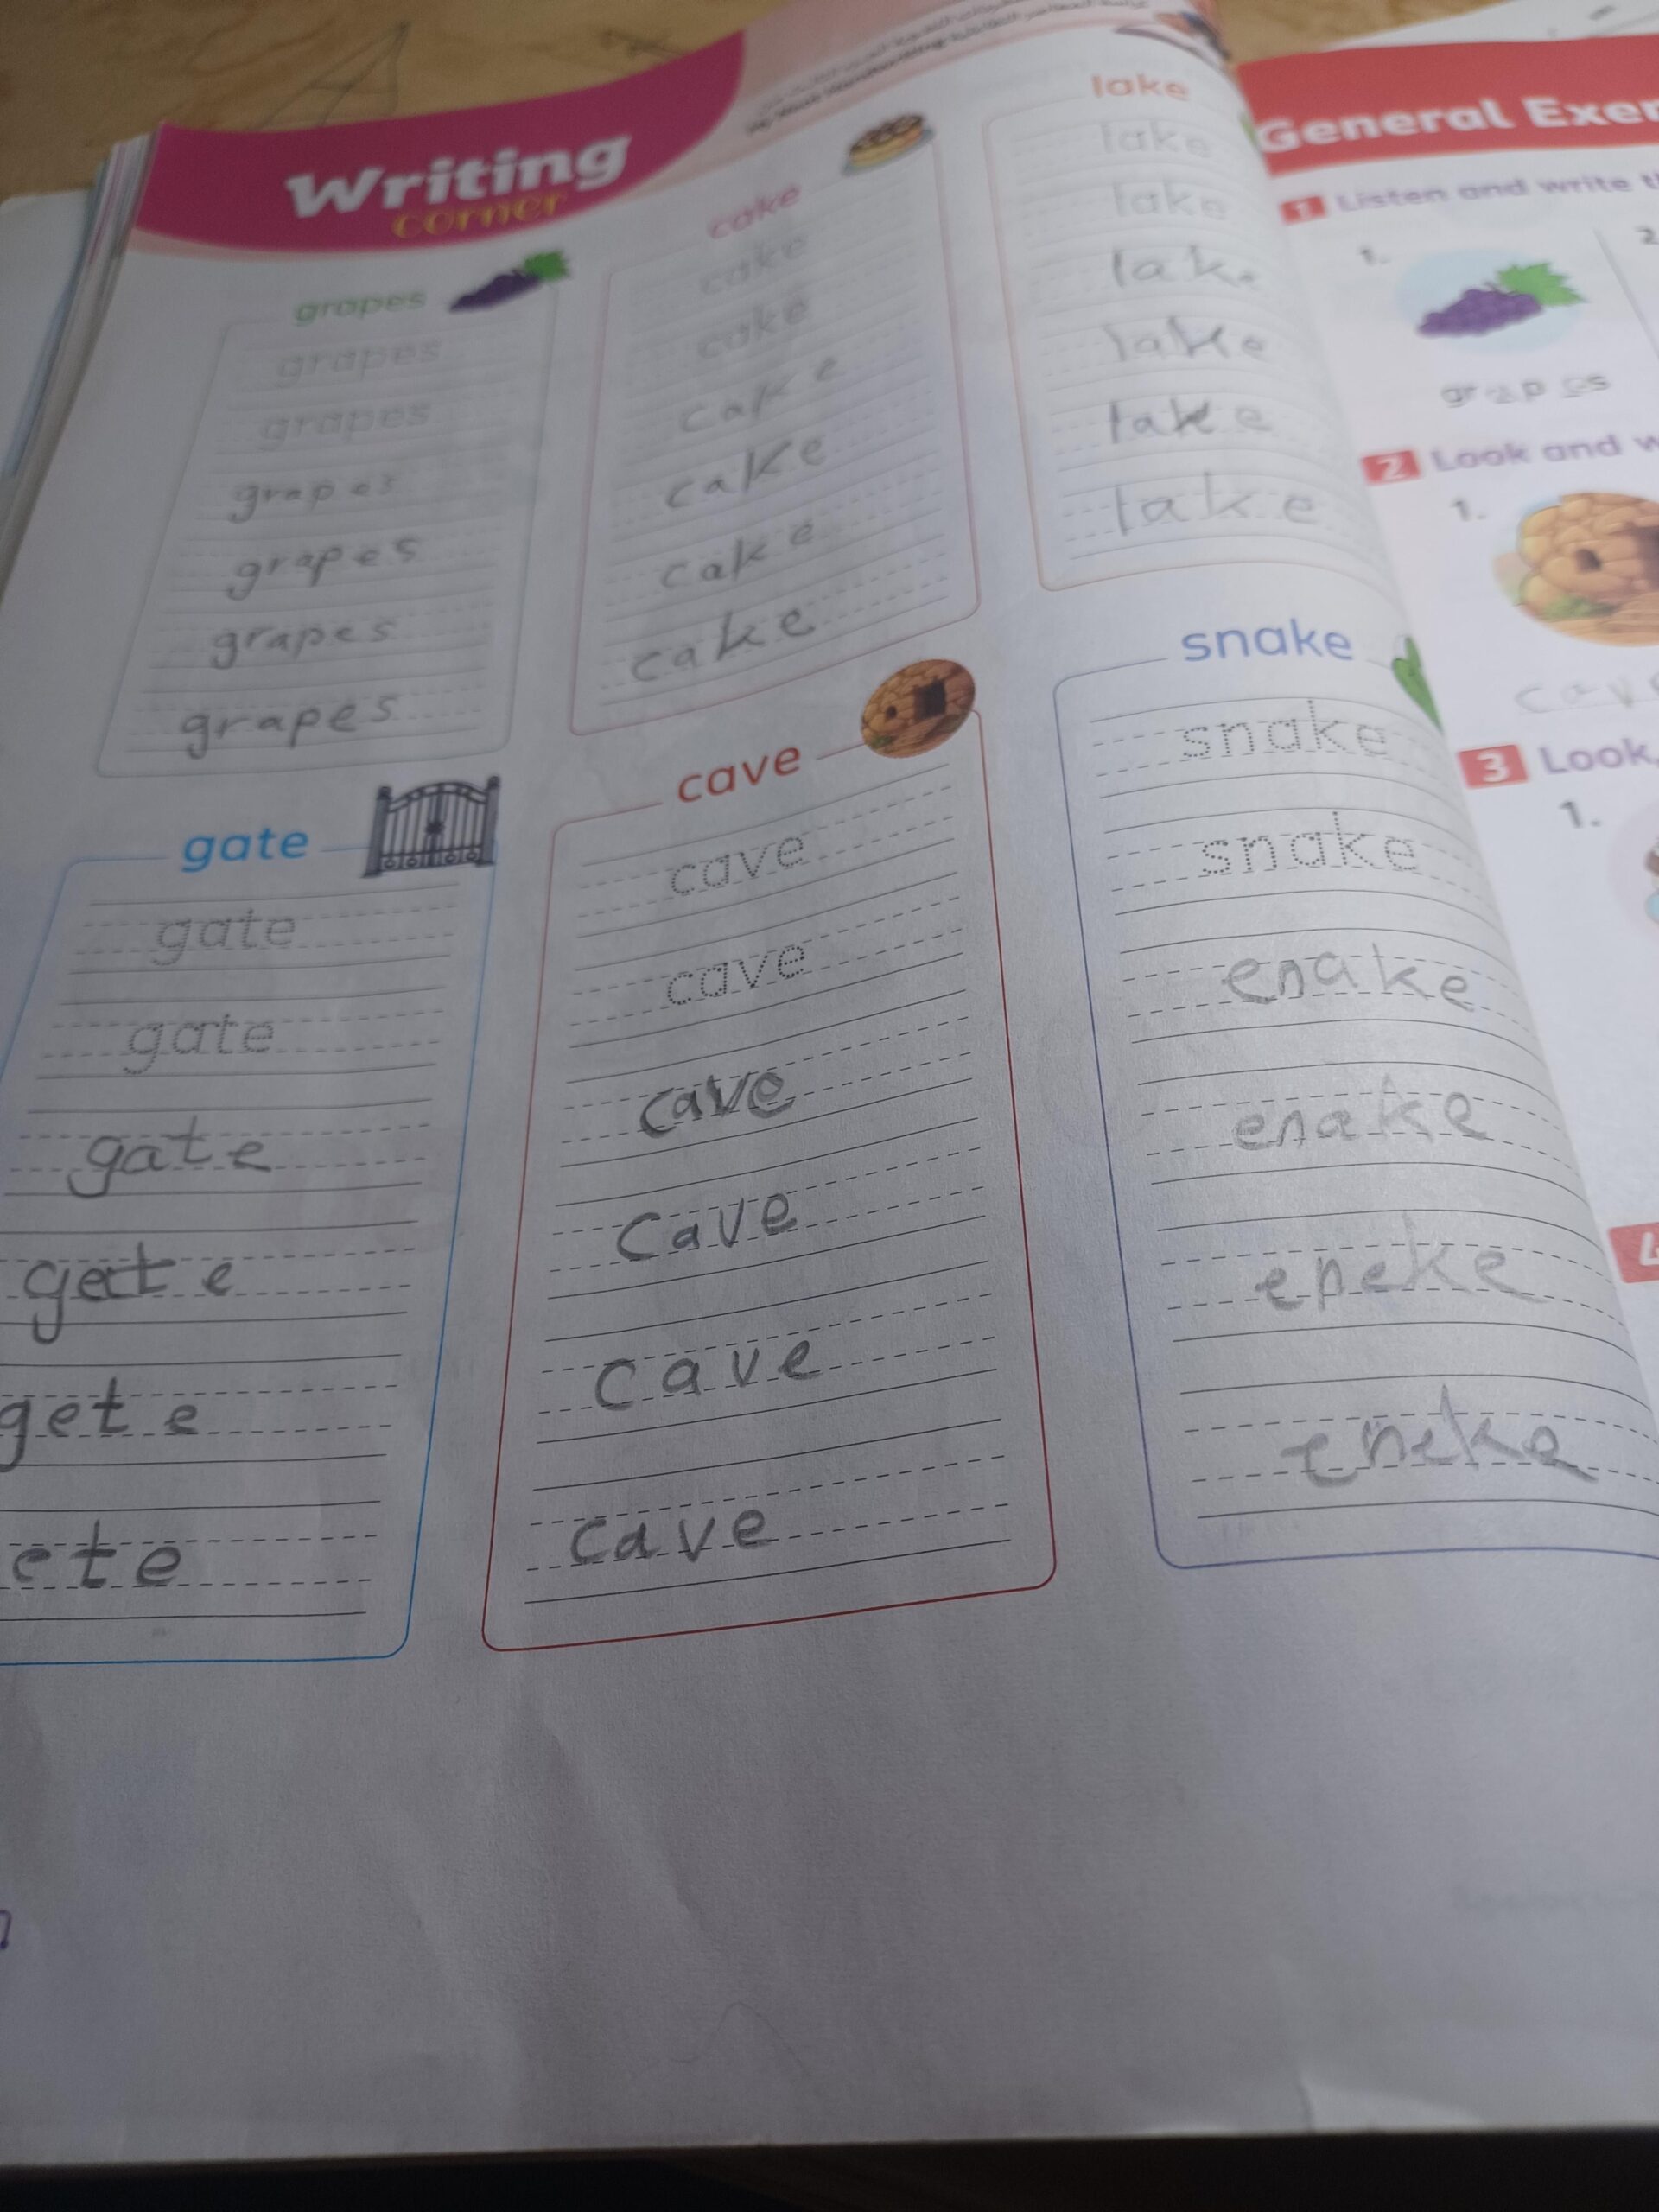 Writing
corner
grapes
grapes
grapes
grapes
grapes
grapes
grapes
cake
cake
cake
cake
cake
cake
cake
lake
lake
lake
lak.
lake
lake
lake
gate
gate
gate
gate
gate
gete
ete
cave
cave
cave
cave
cave
cave
cave
snake
snake
snake
enake
enake
eneke
eneke
General Exer
1 Listen and write t
1.
2
gr a p es
2 Look and w
1.
cav
3 Look,
1.
4